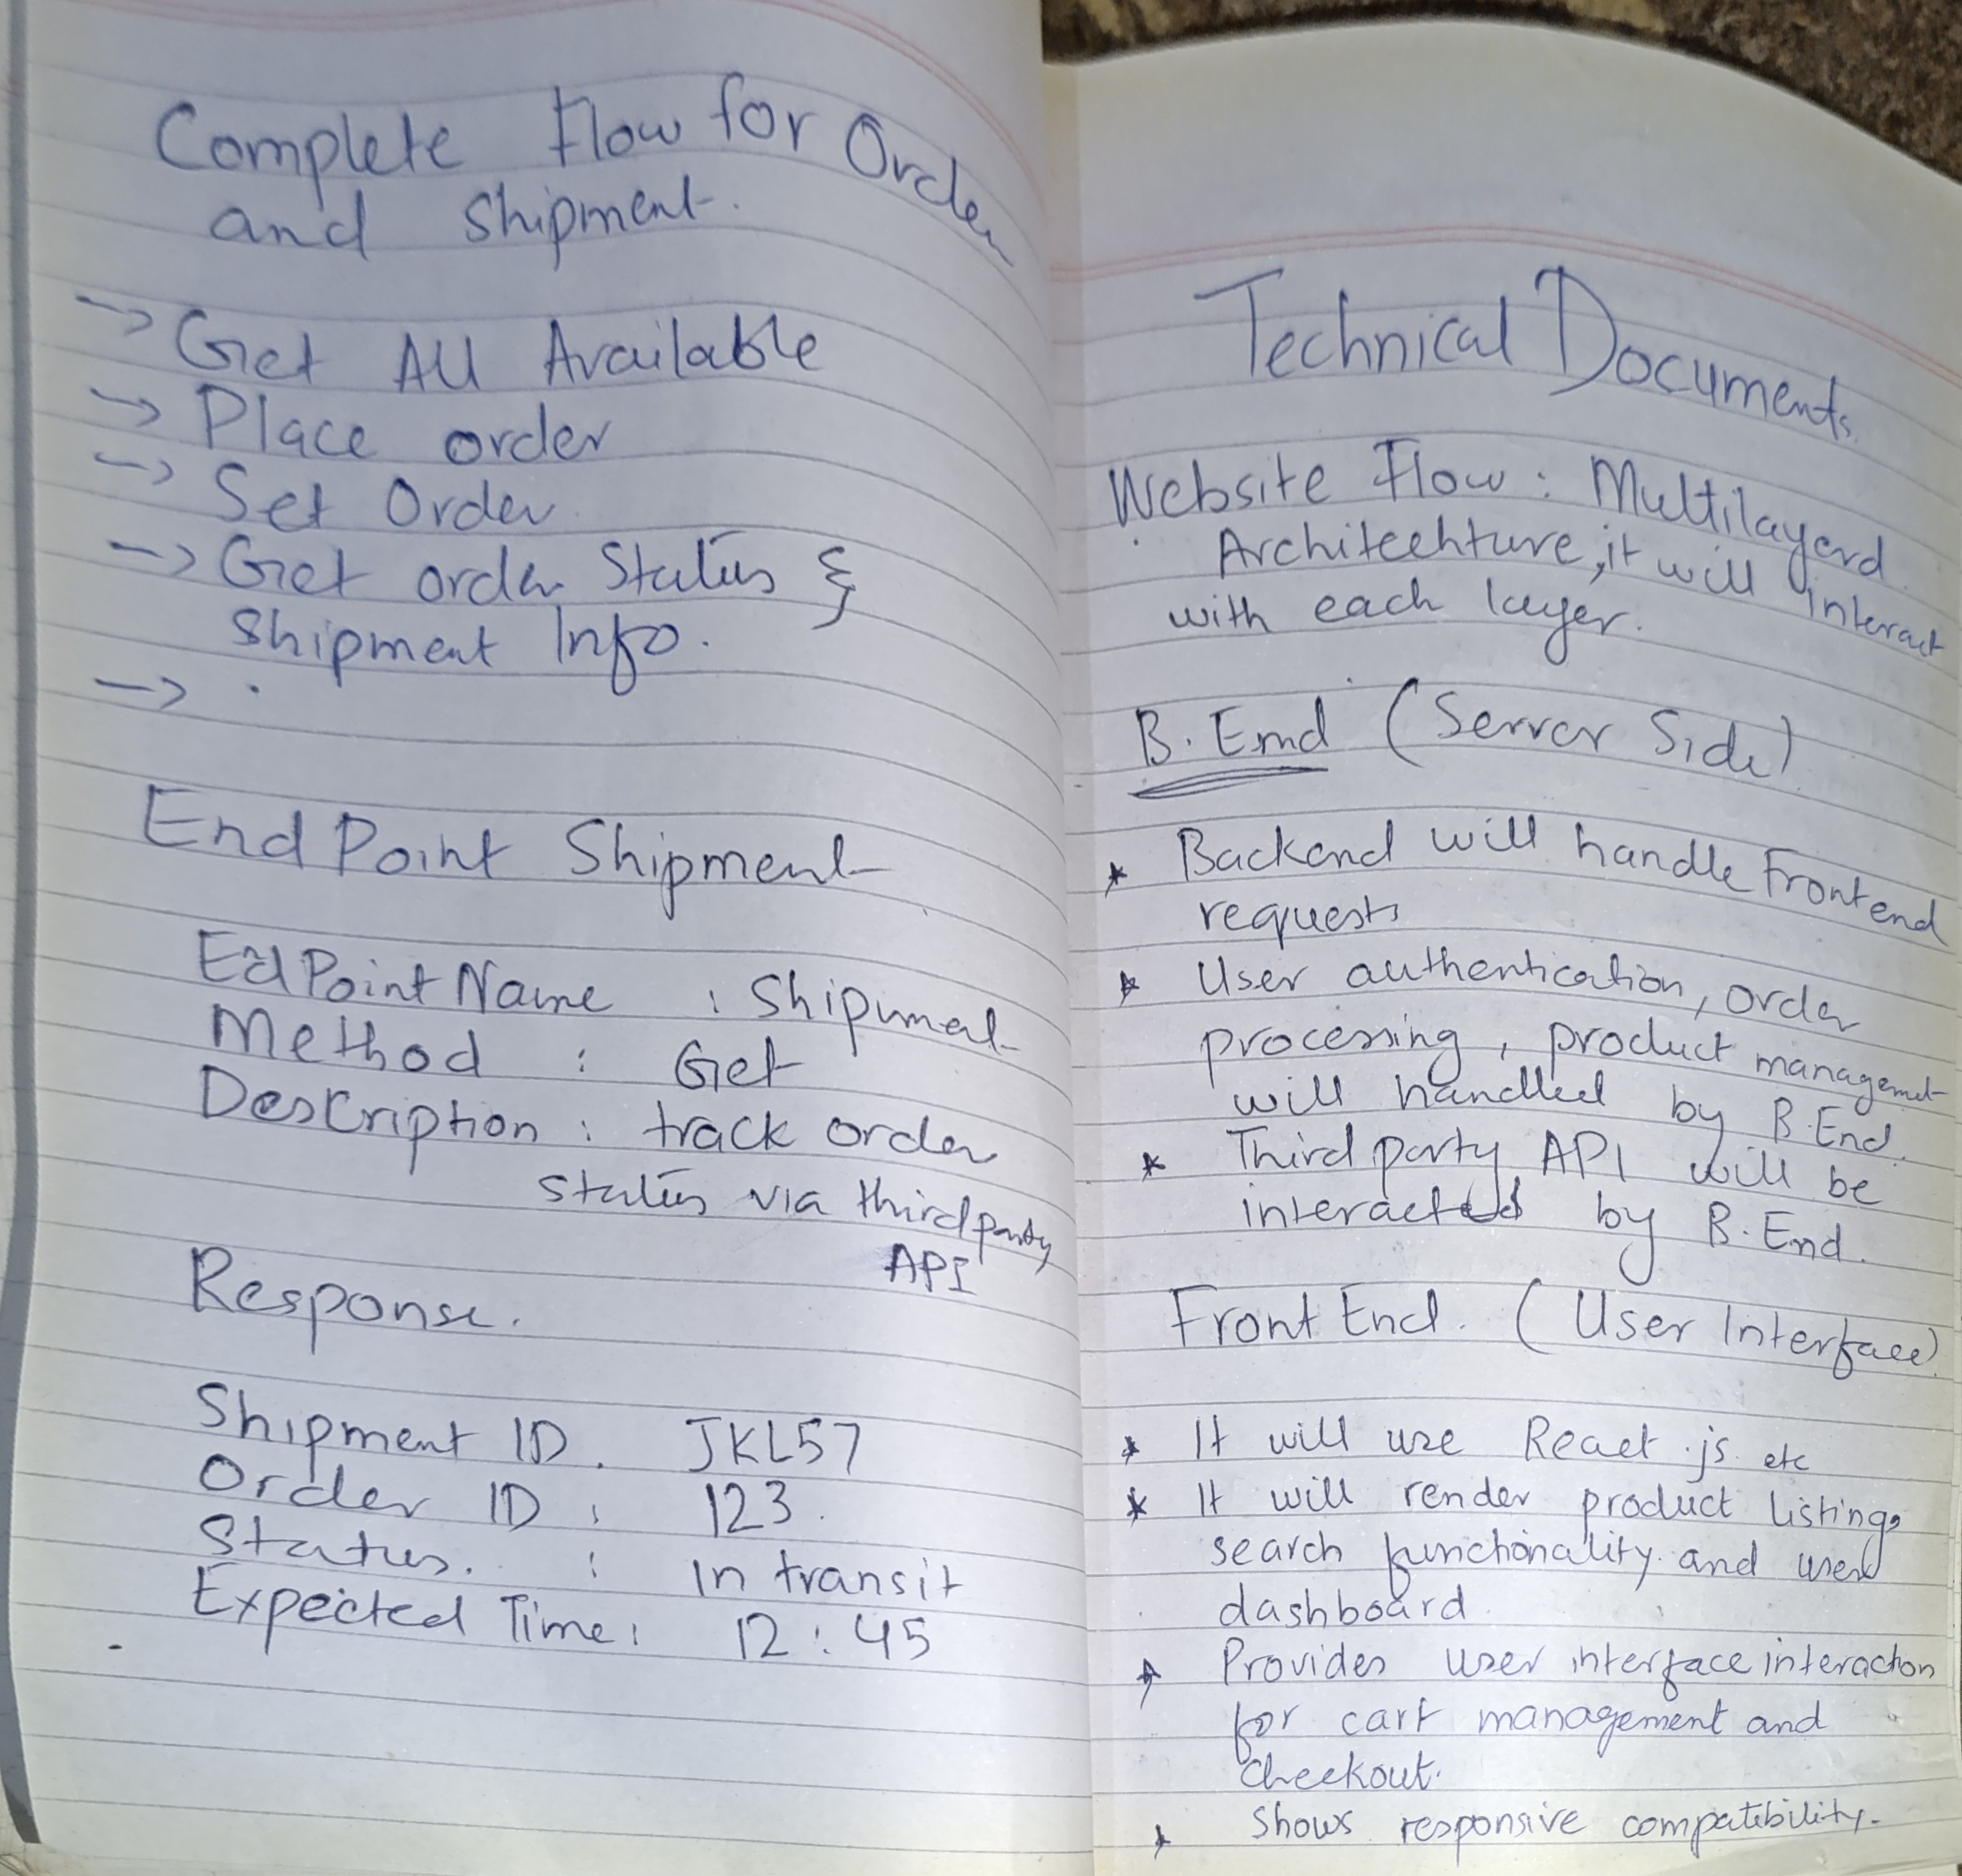 Complete Flow for Order
and Shipment.
-> Get All Available
-> Place order
-> Set Order
-> Get order Status &
Shipment Info.
-> .
End Point Shipment
Ed Point Name : Shipment
Method : Get
Description : track order
status via third party
API
Response.
Shipment ID . JKL57
Order ID : 123.
Status. : In transit
Expected Time : 12:45
Technical Documents
Website Flow : Multilayerd
Architechture, it will interact
with each layer.
B. End (Server Side)
* Backend will handle Frontend
requests
* User authentication, order
processing, product management
will handled by B.End.
* Third party API will be
interacted by B. End.
Front End. (User Interface)
* It will use React.js etc
* It will render product listings
search functionality and user
dashboard.
* Provides user interface interaction
for cart management and
checkout.
* Shows responsive compatibility.